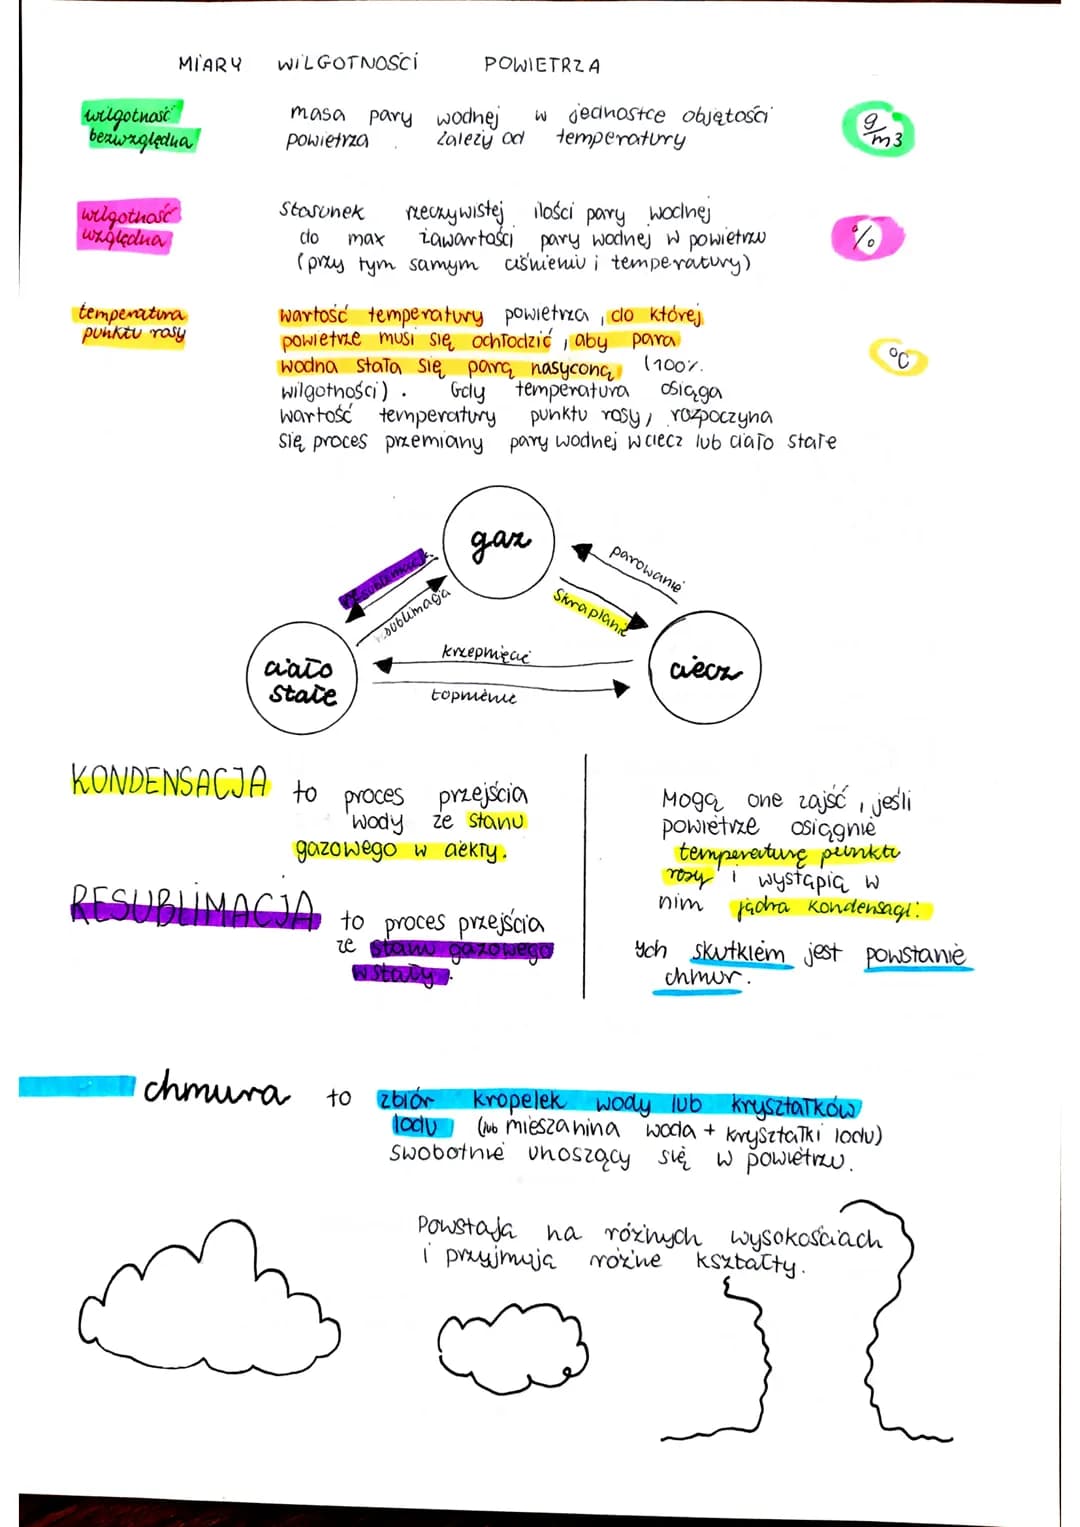 MIARY WILGOTNOŚCI POWIETRZA
wilgotność
bezwzględna
masa pary wodnej w jednostce objętości
powietrza. Zależy od temperatury
g/m3
wilgotność
względna
Stosunek rzeczywistej ilości pary wodnej
do max zawartości pary wodnej w powietrzu
(przy tym samym ciśnieniu i temperatury)
%
temperatura
punktu rosy
wartość temperatury powietrza, do której
powietrze musi się ochłodzić, aby para
wodna stała się parą nasyconą (100%
wilgotności). Gdy temperatura osiąga
wartość temperatury punktu rosy, rozpoczyna
się proces przemiany pary wodnej w ciecz lub ciało stałe
°C
gaz
parowanie
resublimacja
sublimacja
Skraplanie
krzepnięcie
topnienie
ciało
stałe
ciecz
KONDENSACJA to proces przejścia
wody ze stanu
gazowego w ciekły.
RESUBLIMACJA to proces przejścia
ze stanu gazowego
w stały.
Mogą one zajść, jeśli
powietrze osiągnie
temperaturę punktu
rosy i wystąpią w
nim jądra kondensacji.
ych skutkiem jest powstanie
chmur.
chmura to zbiór kropelek wody lub kryształków
lodu (lub mieszanina woda + kryształki lodu)
swobodnie unoszący się w powietrzu.
Powstają na różnych wysokościach
i przyjmują różne kształty.